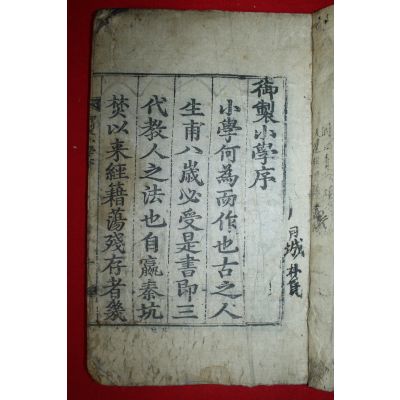 御製小學序
小學何為而作也古之人
生甫八歲必受是書即三
代教人之法也自嬴秦坑
焚以来經籍蕩殘存者幾